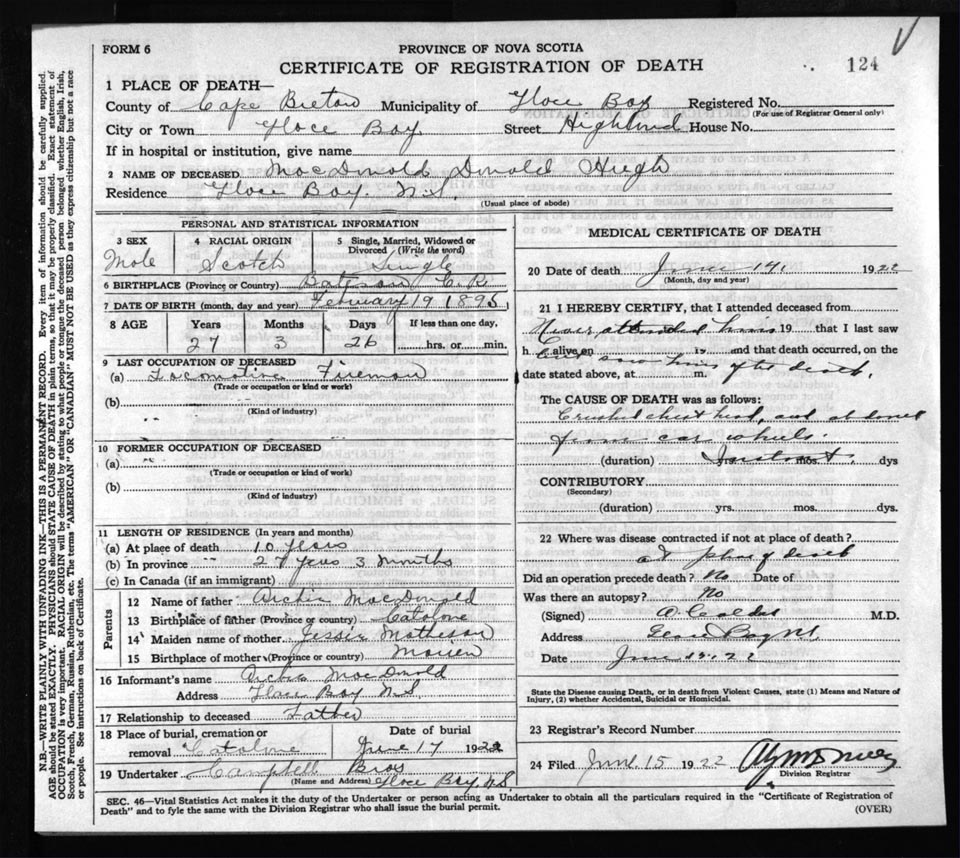 FORM 6
PROVINCE OF NOVA SCOTIA
CERTIFICATE OF REGISTRATION OF DEATH
124
1 PLACE OF DEATH—
County of Cape Breton Municipality of Glace Bay Registered No.
(For use of Registrar General only)
City or Town Glace Bay Street Highland House No.
If in hospital or institution, give name
2 NAME OF DECEASED MacDonald Donald Hugh
Residence Glace Bay N.S.
(Usual place of abode)
PERSONAL AND STATISTICAL INFORMATION
3 SEX
Male
4 RACIAL ORIGIN
Scotch
5 Single, Married, Widowed or Divorced (Write the word)
Single
6 BIRTHPLACE (Province or Country) C.B.
7 DATE OF BIRTH (month, day and year) February 19 1895
8 AGE
Years Months Days If less than one day,
27 3 26 hrs. or min.
9 LAST OCCUPATION OF DECEASED
(a) Locomotive Fireman
(Trade or occupation or kind of work)
(b)
(Kind of industry)
10 FORMER OCCUPATION OF DECEASED
(a)
(Trade or occupation or kind of work)
(b)
(Kind of industry)
11 LENGTH OF RESIDENCE (In years and months)
(a) At place of death 10 years
(b) In province 27 years 3 months
(c) In Canada (if an immigrant)
Parents
12 Name of father Archie MacDonald
13 Birthplace of father (Province or country) Catalone
14 Maiden name of mother Jessie Matheson
15 Birthplace of mother (Province or country)
16 Informant's name Archie MacDonald
Address Glace Bay N.S.
17 Relationship to deceased Father
18 Place of burial, cremation or removal Catalone
Date of burial
June 17 1922
19 Undertaker Campbell Bros
(Name and Address) Glace Bay, N.S.
MEDICAL CERTIFICATE OF DEATH
20 Date of death June 14, 1922
(Month, day and year)
21 I HEREBY CERTIFY, that I attended deceased from
Never attended him 19 that I last saw
h alive on 19 and that death occurred, on the
saw him after death.
date stated above, at m.
The CAUSE OF DEATH was as follows:
Crushed chest head, and
from car wheels.
(duration) Instant. mos. dys
CONTRIBUTORY
(Secondary)
(duration) yrs. mos. dys.
22 Where was disease contracted if not at place of death?
at place of death
Did an operation precede death? No Date of
Was there an autopsy? No
(Signed) A. Calder M.D.
Address Glace Bay N.S.
Date June 15. 22
State the Disease causing Death, or in death from Violent Causes, state (1) Means and Nature of
Injury, (2) whether Accidental, Suicidal or Homicidal.
23 Registrar's Record Number
24 Filed June 15 1922
Division Registrar
SEC. 46—Vital Statistics Act makes it the duty of the Undertaker or person acting as Undertaker to obtain all the particulars required in the "Certificate of Registration of
Death" and to fyle the same with the Division Registrar who shall issue the burial permit.
(OVER)
N.B.—WRITE PLAINLY WITH UNFADING INK—THIS IS A PERMANENT RECORD. Every item of information should be carefully supplied.
AGE should be stated EXACTLY. PHYSICIANS should STATE CAUSE OF DEATH in plain terms, so that it may be properly classified. Exact statement of
OCCUPATION is very important. RACIAL ORIGIN will be described by stating to what people or tongue the deceased person belonged whether English, Irish,
Scotch, French, German, Russian, Ruthenian, etc. The terms "AMERICAN" OR "CANADIAN" MUST NOT BE USED as they express citizenship but not a race
or people. See instructions on back of Certificate.